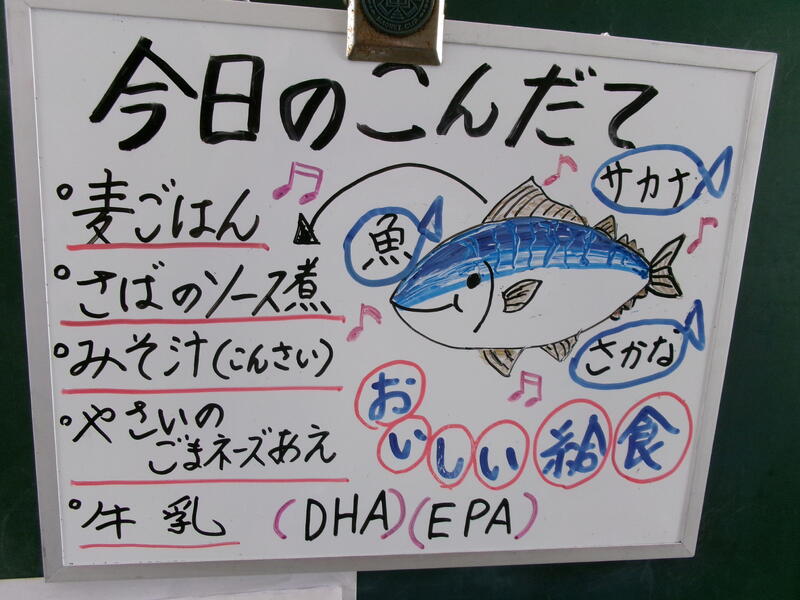 今日のこんだて
麦ごはん
さばのソース煮
みそ汁(こんさい)
やさいの
ごまネーズあえ
牛乳 (DHA)(EPA)
魚
サカナ
さかな
おいしい給食